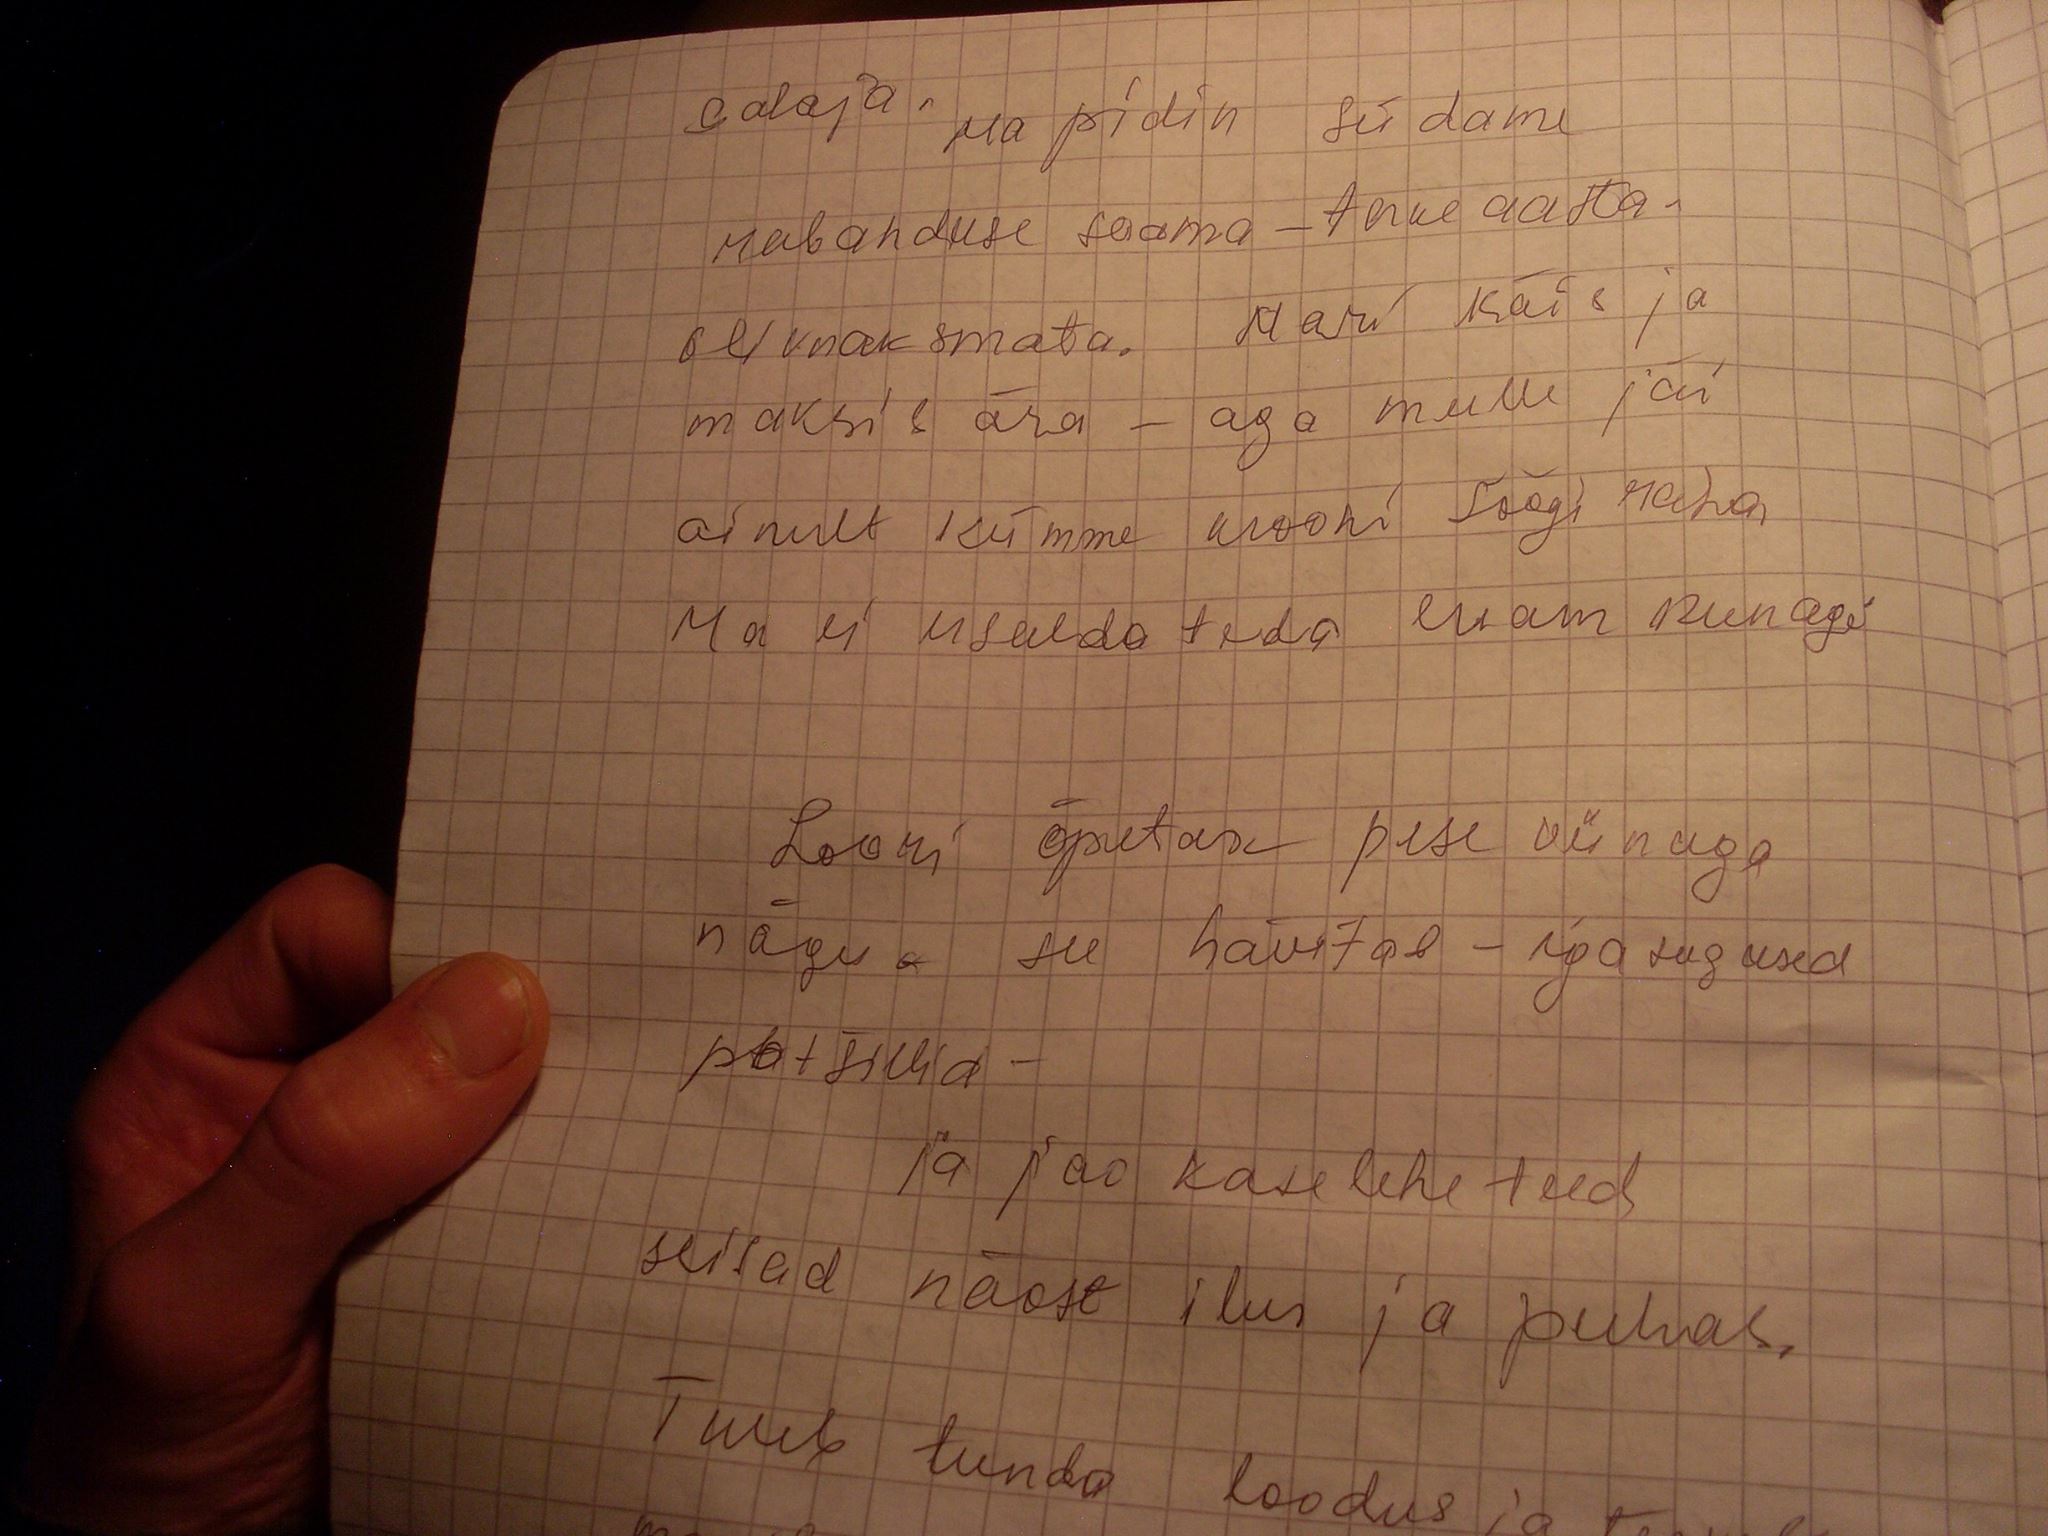 salaja. Ma pidin südame
rabanduse saama – terve aasta.
oli maksmata. Mari käis ja
maksis ära – aga mulle jäi
ainult kümme krooni söögi raha
Ma ei usalda teda enam kunagi
Loori õpetas pese viinaga
nägu see hävitab – igasugused
patsillid –
ja joo kaselehe teed
seisad näost ilus ja puhas.
Tuleb tunda loodus ja